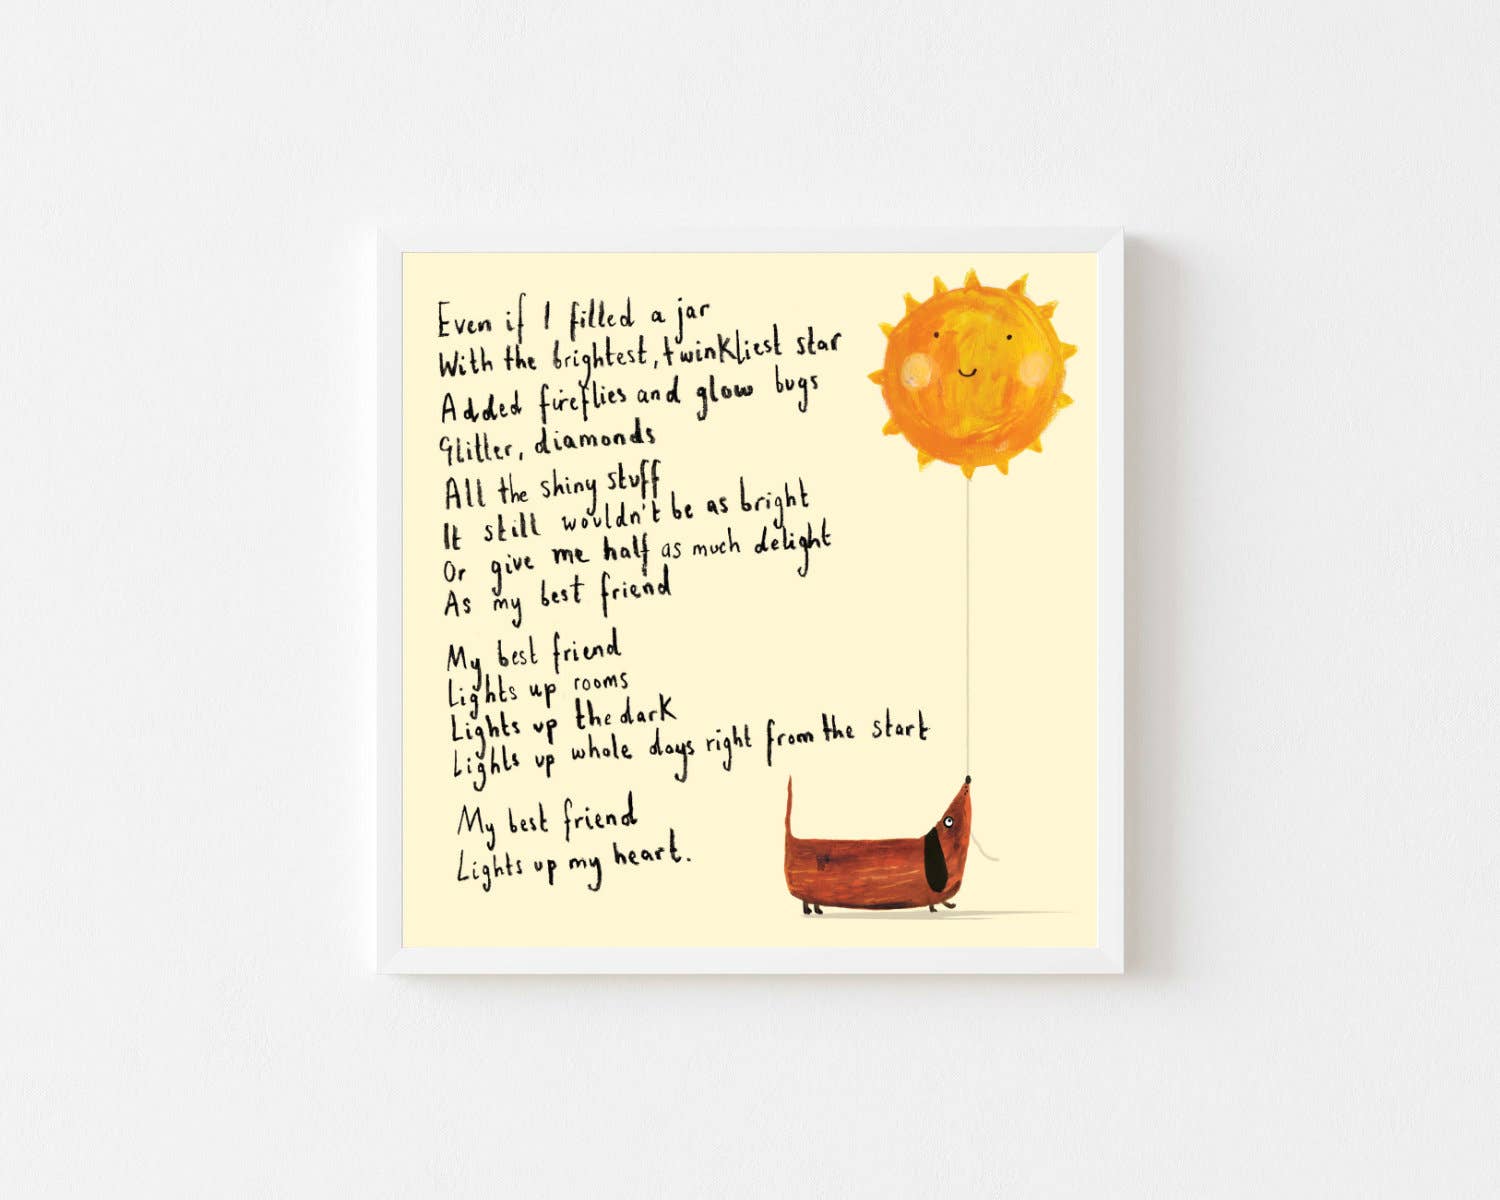 Even if I filled a jar
With the brightest, twinkliest star
Added fireflies and glow bugs
Glitter, diamonds
All the shiny stuff
It still wouldn't be as bright
Or give me half as much delight
As my best friend
My best friend
Lights up rooms
Lights up the dark
Lights up whole days right from the start
My best friend
Lights up my heart.